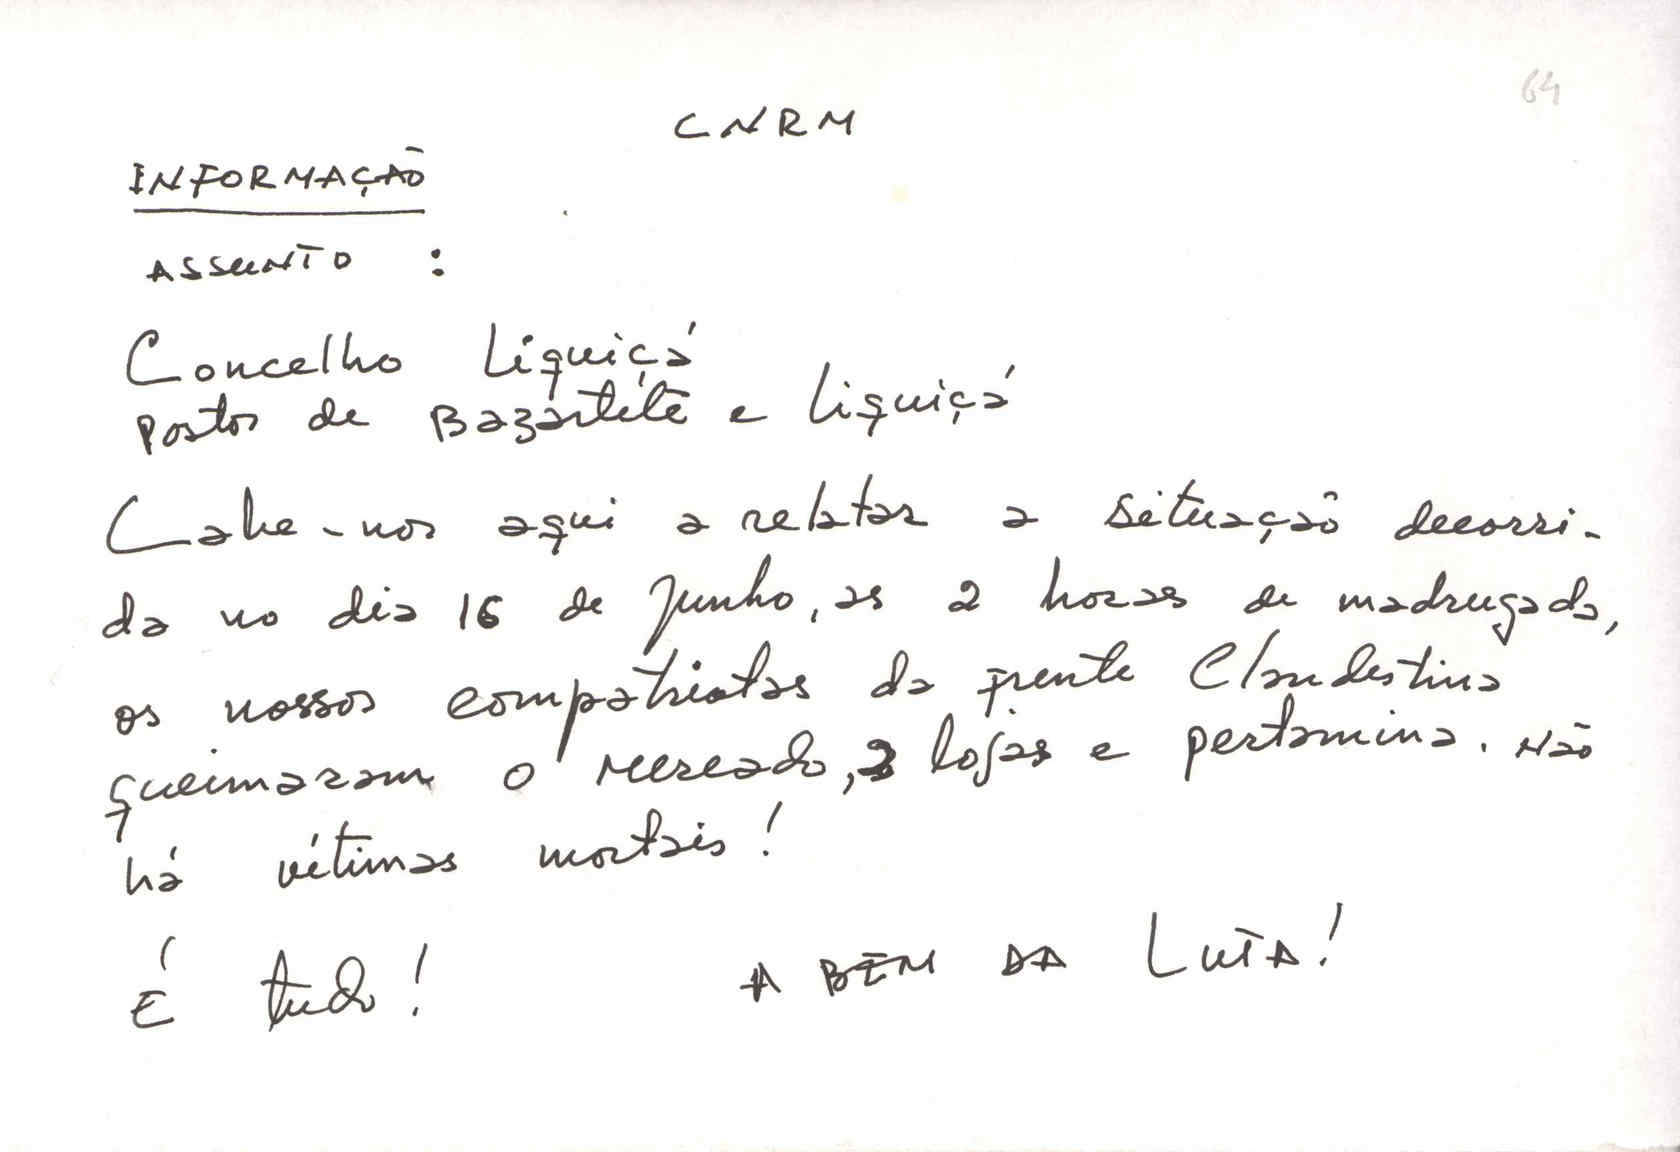 64
CNRM
INFORMAÇÃO
ASSUNTO :
Concelho Liquiçá
Postos de Bazartétè e Liquiçá
Cabe-nos aqui a relatar a situação decorri-
da no dia 16 de Junho, as 2 horas de madrugada,
os nossos compatriotas da frente Clandestina
queimaram o mercado, 3 lojas e pertamina. Não
há vítimas mortais!
É tudo! A BEM DA LUTA!